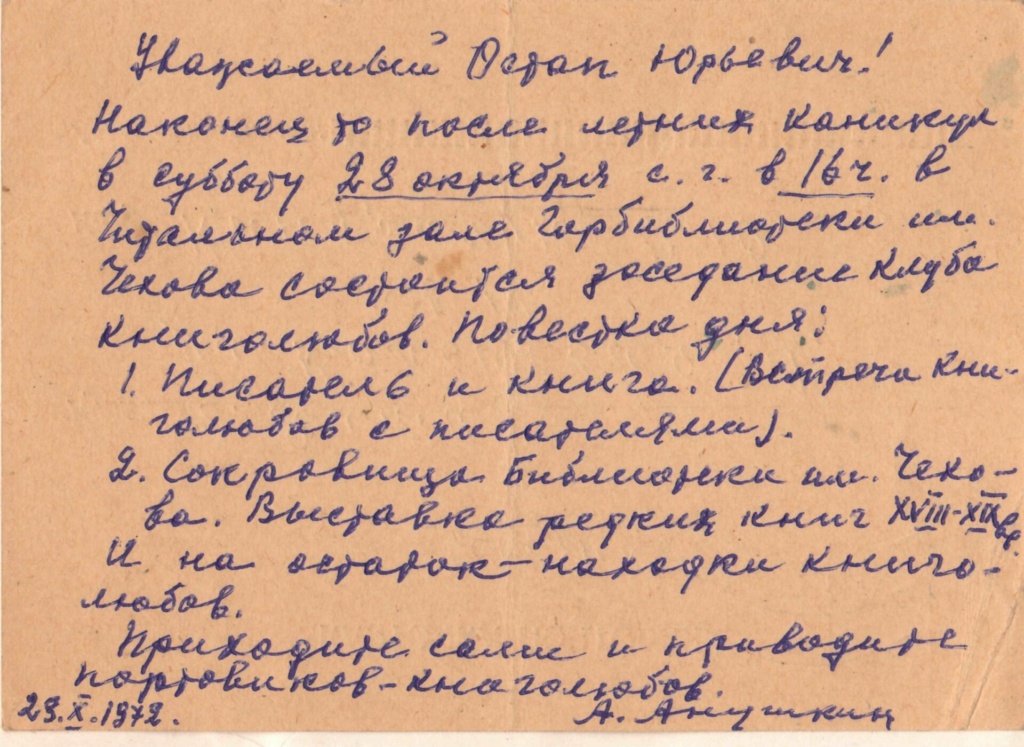 Уважаемый Остап Юрьевич!
Наконец то после летних каникул
в субботу 28 октября с. г. в 16ч. в
Читальном зале Горбиблиотеки им.
Чехова состоится заседание Клуба
книголюбов. Повестка дня:
1. Писатель и книга. (Встреча кни-
голюбов с писателями).
2. Сокровища Библиотеки им. Чехо-
ва. Выставка редких книг XVIII-XIX вв.
И на остаток - находки книго-
любов.
Приходите сами и приводите
портовиков-книголюбов.
23.X.1972. А. Анушкин